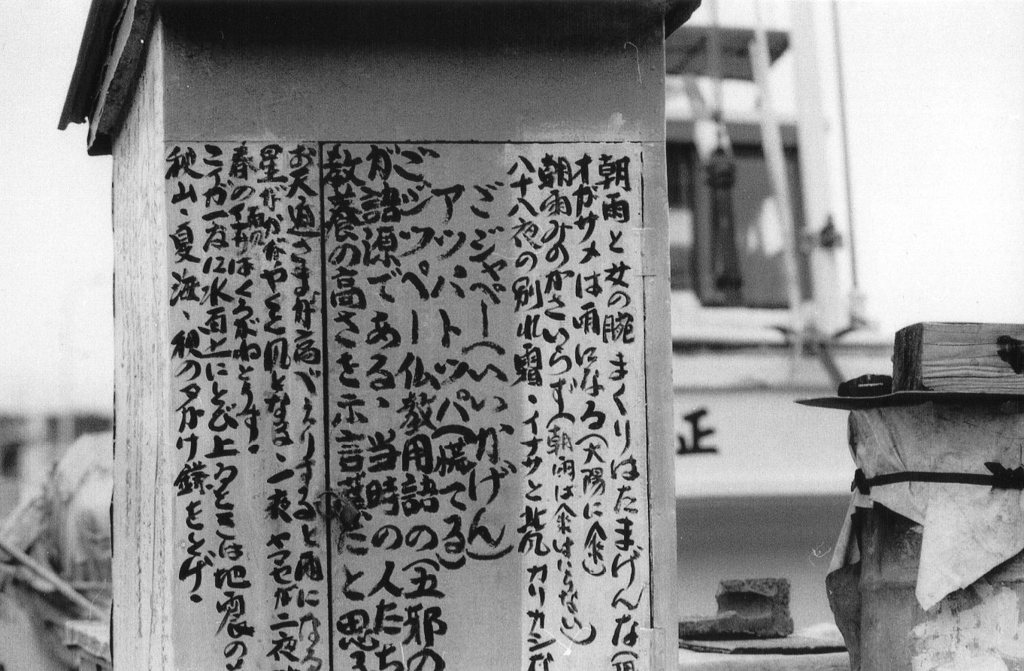 朝雨と女の腕まくりはたまげんな(
オガサメは雨になる(太陽に傘)
朝雨みのかさいらず(朝雨は傘はいらない)
八十八夜の別れ霜・イナサと荒カリカシな
ごジャペー(いいかげん)
アッパトッパ(慌てる)
ごジッペー仏教用語の(五邪の
が語源である、当時の人たち
教養の高さを示言葉だと思
お天道さまが高べえりすると雨になる
星がかがやくと風となる・一夜
春の 南はくうがねとうす・
こイガ一なに水面上にとび上たときは地震の
秋山・夏海、秋の夕がけ鎌をとげ・
正